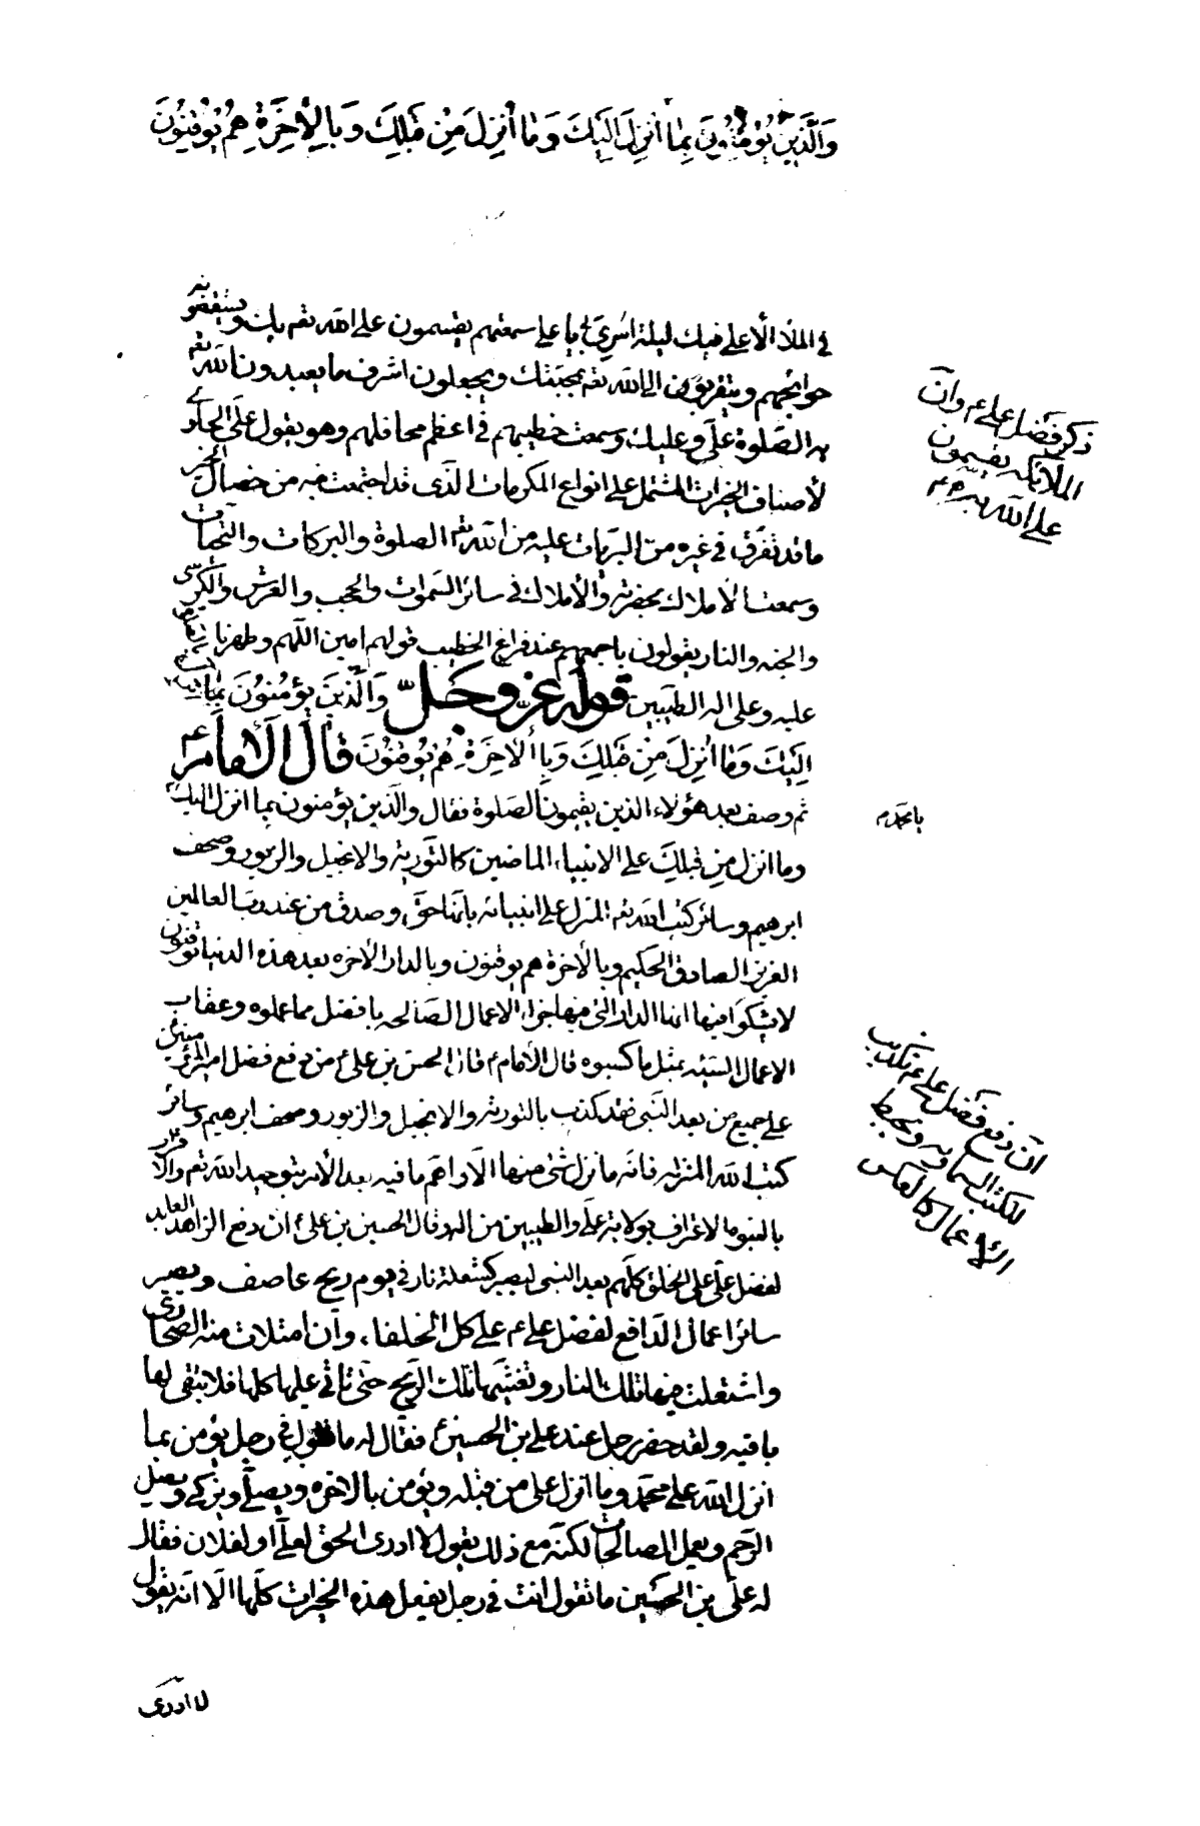 وَالَّذِينَ يُؤْمِنُونَ بِمَا أُنْزِلَ إِلَيْكَ وَمَا أُنْزِلَ مِنْ قَبْلِكَ وَبِالْأَخِرَةِ هُمْ يُوقِنُونَ
في الملاء الأعلى فيك ليلة اسري بي يا علي سمعتهم يقسمون على الله تعم بك ويستقضونه
حوائجهم ويتقربون الى الله تعم بمحبتك ويجعلون اشرف ما يعبدون الله تعم
به الصلوة علي وعليك وسمعت خطيبهم في اعظم محافلهم وهو يقول علي الحاوي
لأصناف الخيرات المشتمل على انواع المكرمات الذي قد اجتمعت فيه من خصال الخير
ما قد تفرق في غيره من البريات عليه من الله تعم الصلوة والبركات والتحيات
وسمعت الأملاك بحضرته والأملاك في سائر السموات والحجب والعرش والكرسي
والجنه والنار يقولون باجمعهم عند فراغ الخطيب قولهم امين اللهم وطهرنا بالصلوة
عليه وعلى اله الطيبين قوله عز وجل وَالَّذِينَ يُؤْمِنُونَ بِمَا أنزل
إِلَيْكَ وَمَا أُنْزِلَ مِنْ قَبْلِكَ وَبِالْأَخِرَةِ هُمْ يُوقِنُونَ قال الامام ع
ثم وصف بعد هؤلاء الذين يقيمون الصلوة فقال والذين يؤمنون بما انزل اليك
وما انزل من قبلك على الانبياء الماضين كالتورية والانجيل والزبور وصحف
ابرهيم وسائر كتب الله تعم المنزل على انبيائه بانها حق وصدق من عند رب العالمين
العزيز الصادق الحكيم وبالأخرة هم يوقنون وبالدار الأخره بعد هذه الدنيا يوقنون
لا يشكوا فيها انها الدار التي فيها جزاء الاعمال الصالحه بافضل مما عملوه وعقاب
الاعمال السيئه بمثل ما كسبوه قال الأمام ع قال الحسن بن علي ع من دفع فضل امير المؤمنين
على جميع من بعد النبي فقد كذب بالتورية والانجيل والزبور وصحف ابرهيم وسائر
كتب الله المنزله فانه ما نزل شئ منها الا واهم ما فيه بعد الأمر بتوحيد الله تعم والاقرار
بالنبوه الاعتراف بولاية علي والطيبين من اله وقال الحسين بن علي ع ان دفع الزاهد العابد
لفضل علي على الخلق كلهم بعد النبي ليصير كشعلة نار في يوم ريح عاصف ويصير
سائر اعمال الدافع لفضل علي ع على كل الخلفاء وان امتلات منه الصحاري
واشتعلت فيها تلك النار وتغشيها تلك الريح حتى تاتي عليها كلها فلا تبقى لها
باقيه ولقد حضر رجل عند علي بن الحسين ع فقال له ما تقول في رجل يؤمن بما
انزل الله على محمد وما انزل على من قبله ويؤمن بالاخره ويصلي ويزكي ويصل
الرحم ويعمل الصالحات لكنه مع ذلك يقول لا ادري الحق لعلي او لفلان فقال
له علي بن الحسين ما تقول انت في رجل يفعل هذه الخيرات كلها الا انه يقول
لا ادري
ذكر فضل علي ع وان
الملائكه يقسمون
على الله به ع
يا محمد
ان دفع فضل علي ع تكذيب
للكتب السماويه ويحبط
الأعمال كالعكس